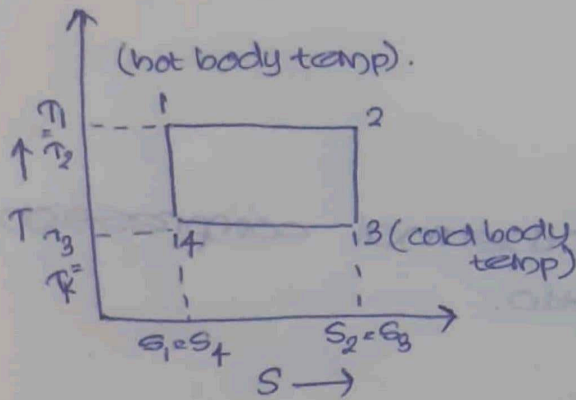 (hot body temp).
1
2
T1
=
T2
↑
T
T3
=
T4
4
3 (cold body
temp)
S1 = S4
S2 = S3
S →